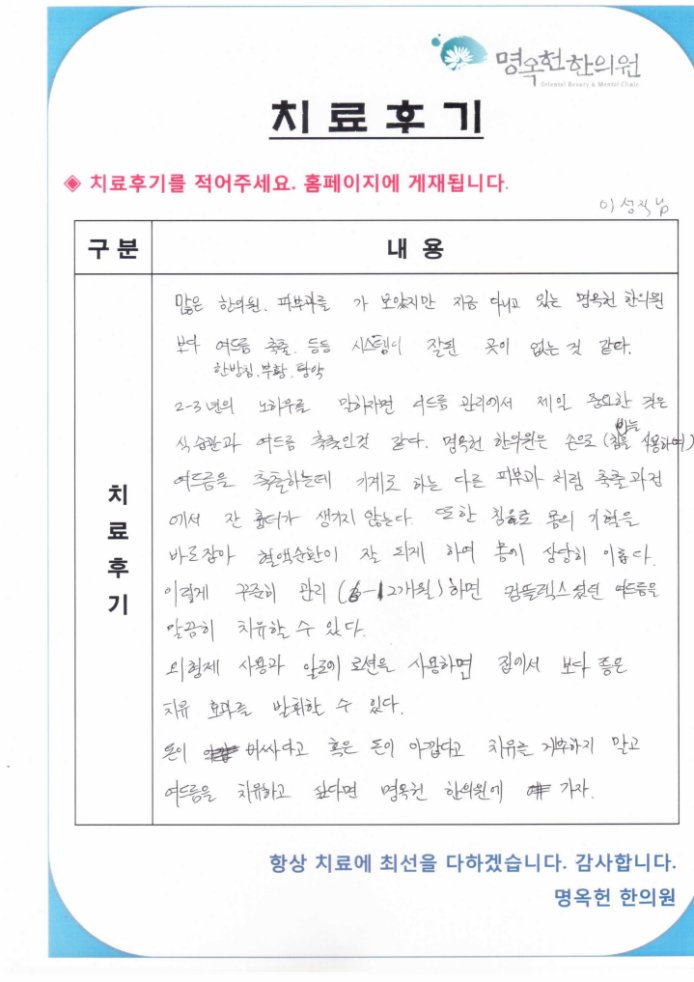 명옥헌한의원
Oriental Beauty & Mental Clinic
치료후기
◈ 치료후기를 적어주세요. 홈페이지에 게재됩니다.
이성직님
구분 내용
치료후기
많은 한의원, 피부과를 가 보았지만 지금 다니고 있는 명옥헌 한의원
보다 여드름 축출, 등등 시스템이 잘된 곳이 없는 것 같다.
한방침, 부황, 탕약
2-3년의 노하우를 말하자면 여드름 관리에서 제일 중요한 것은
식습관과 여드름 축출인것 같다. 명옥헌 한의원은 손으로 (침을 사용하여)
여드름을 축출하는데 기계로 하는 다른 피부과 처럼 축출과정
에서 잔 흉터가 생기지 않는다. 또한 침으로 몸의 기혈을
바로잡아 혈액순환이 잘 되게 하여 몸이 상당히 이롭다.
이렇게 꾸준히 관리 (6-12개월)하면 컴플렉스였던 여드름을
말끔히 치유할 수 있다.
외형제 사용과 알로에 로션을 사용하면 집에서 보다 좋은
치유 효과를 발휘할 수 있다.
돈이 비싸다고 혹은 돈이 아깝다고 치유를 거부하지 말고
여드름을 치유하고 싶다면 명옥헌 한의원에 가자.
항상 치료에 최선을 다하겠습니다. 감사합니다.
명옥헌 한의원